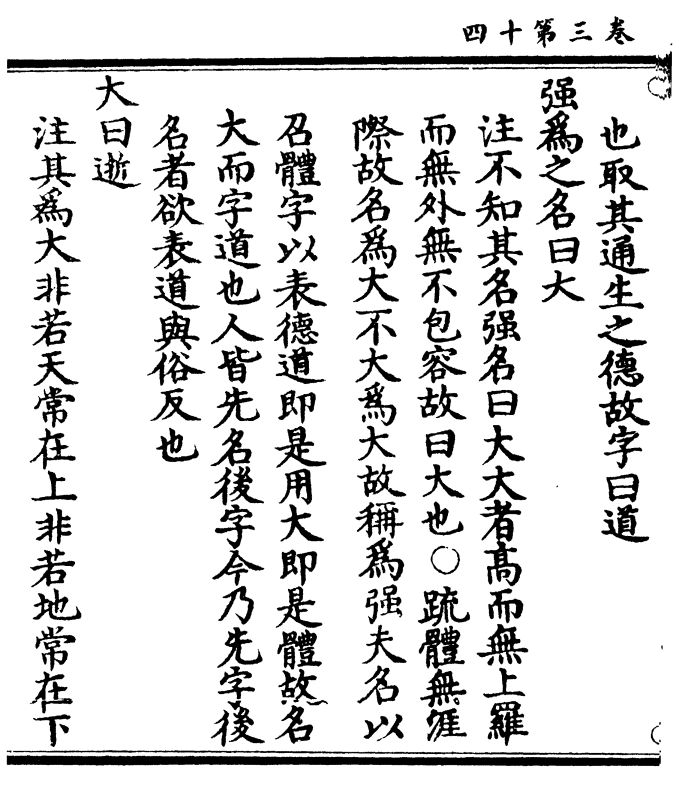 卷三第十四
也取其通生之德故字曰道
强爲之名曰大
注不知其名强名曰大大者高而無上羅
而無外無不包容故曰大也○疏體無涯
際故名爲大不大爲大故稱爲强夫名以
召體字以表德道即是用大即是體故名
大而字道也人皆先名後字今乃先字後
名者欲表道與俗反也
大曰逝
注其爲大非若天常在上非若地常在下